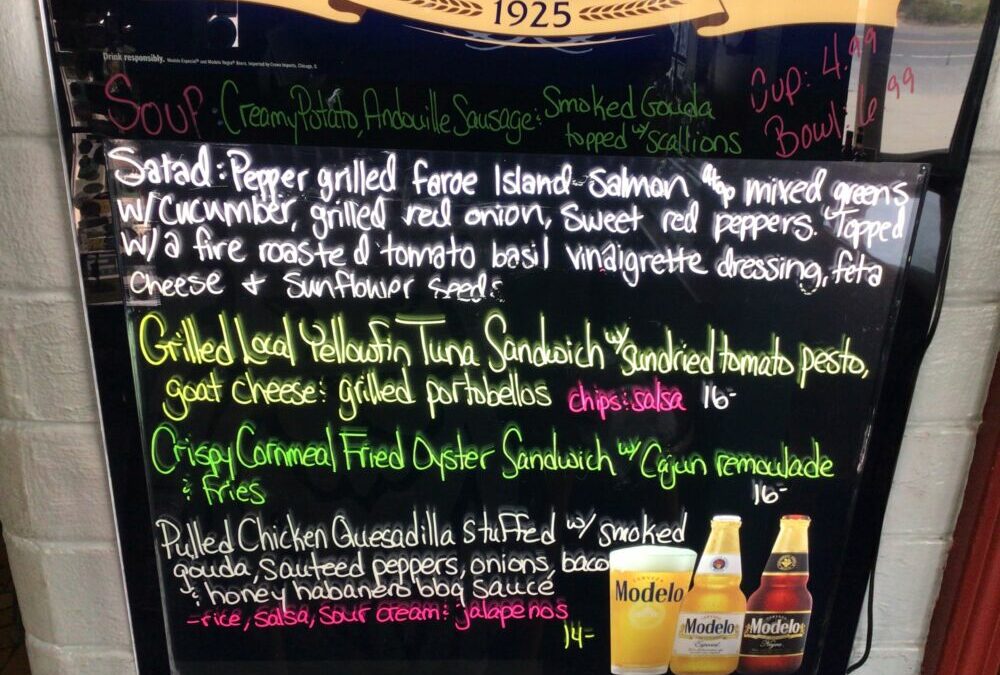 1925
Drink responsibly. Modelo Especial® and Modelo Negra® Beers. Imported by Crown Imports, Chicago, IL
Soup: Creamy Potato, Andouille Sausage & Smoked Gouda
topped w/ scallions
Cup: 4.99
Bowl: 6.99
Salad: Pepper grilled faroe Island Salmon atop mixed greens
w/cucumber, grilled red onion, sweet red peppers. Topped
w/a fire roasted tomato basil vinaigrette dressing, feta
cheese + sunflower seeds
Grilled Local Yellowfin Tuna Sandwich w/ sundried tomato pesto,
goat cheese & grilled portobellos chips & salsa 16-
Crispy Cornmeal Fried Oyster Sandwich w/ Cajun remoulade
& fries
16-
Pulled Chicken Quesadilla stuffed w/ smoked
gouda, sauteed peppers, onions, baco
& honey habanero bbq sauce
-rice, salsa, sour cream & jalapenos
14-
Modelo
Modelo
Especial
Modelo
Negra